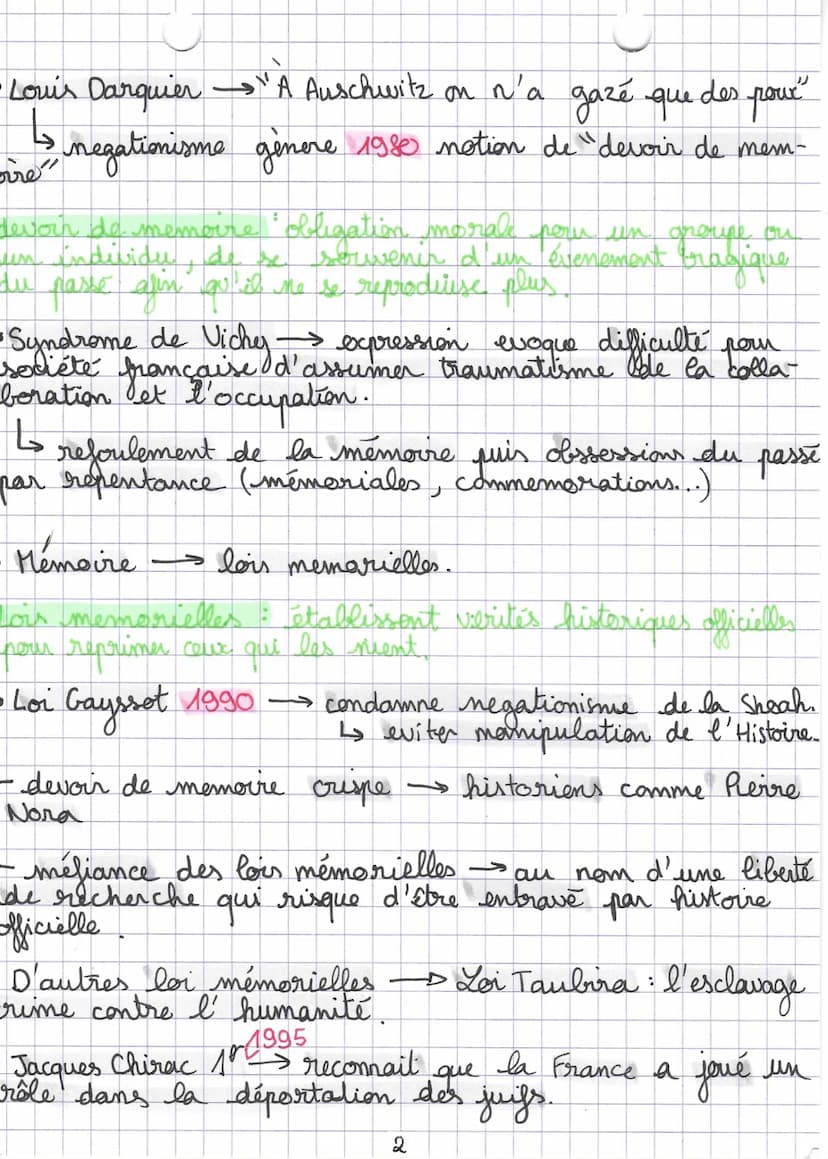 Louis Darquier → "À Auschwitz on n'a gazé que des poux"
↳ negationisme gènere 1980 notion de "devoir de mem-
oire"
devoir de memoire : obligation morale pour un groupe ou
un individu, de se souvenir d'un évenement tragique
du passé afin qu'il ne se reproduise plus.
• Syndrome de Vichy → expression evoque difficulté pour
société française d'assumer traumatisme de la colla-
boration et l'occupation.
↳ refoulement de la mémoire puis obssessions du passé
par repentance (mémoriales, commemorations...)
Mémoire → lois memorielles.
Lois memorielles : établissent vérités historiques officielles
pour reprimer ceux qui les nient.
• Loi Gayssot 1990 → condamne negationisme de la Shoah.
↳ eviter manipulation de l'Histoire.
- devoir de memoire crispe → historiens comme Pierre
Nora
- méfiance des lois mémorielles → au nom d'une liberté
de recherche qui risque d'être entravé par histoire
officielle.
D'autres loi mémorielles → Loi Taubira : l'esclavage
rime contre l'humanité.
1995
Jacques Chirac 1er → reconnait que la France a joué un
rôle dans la déportation des juifs.
2